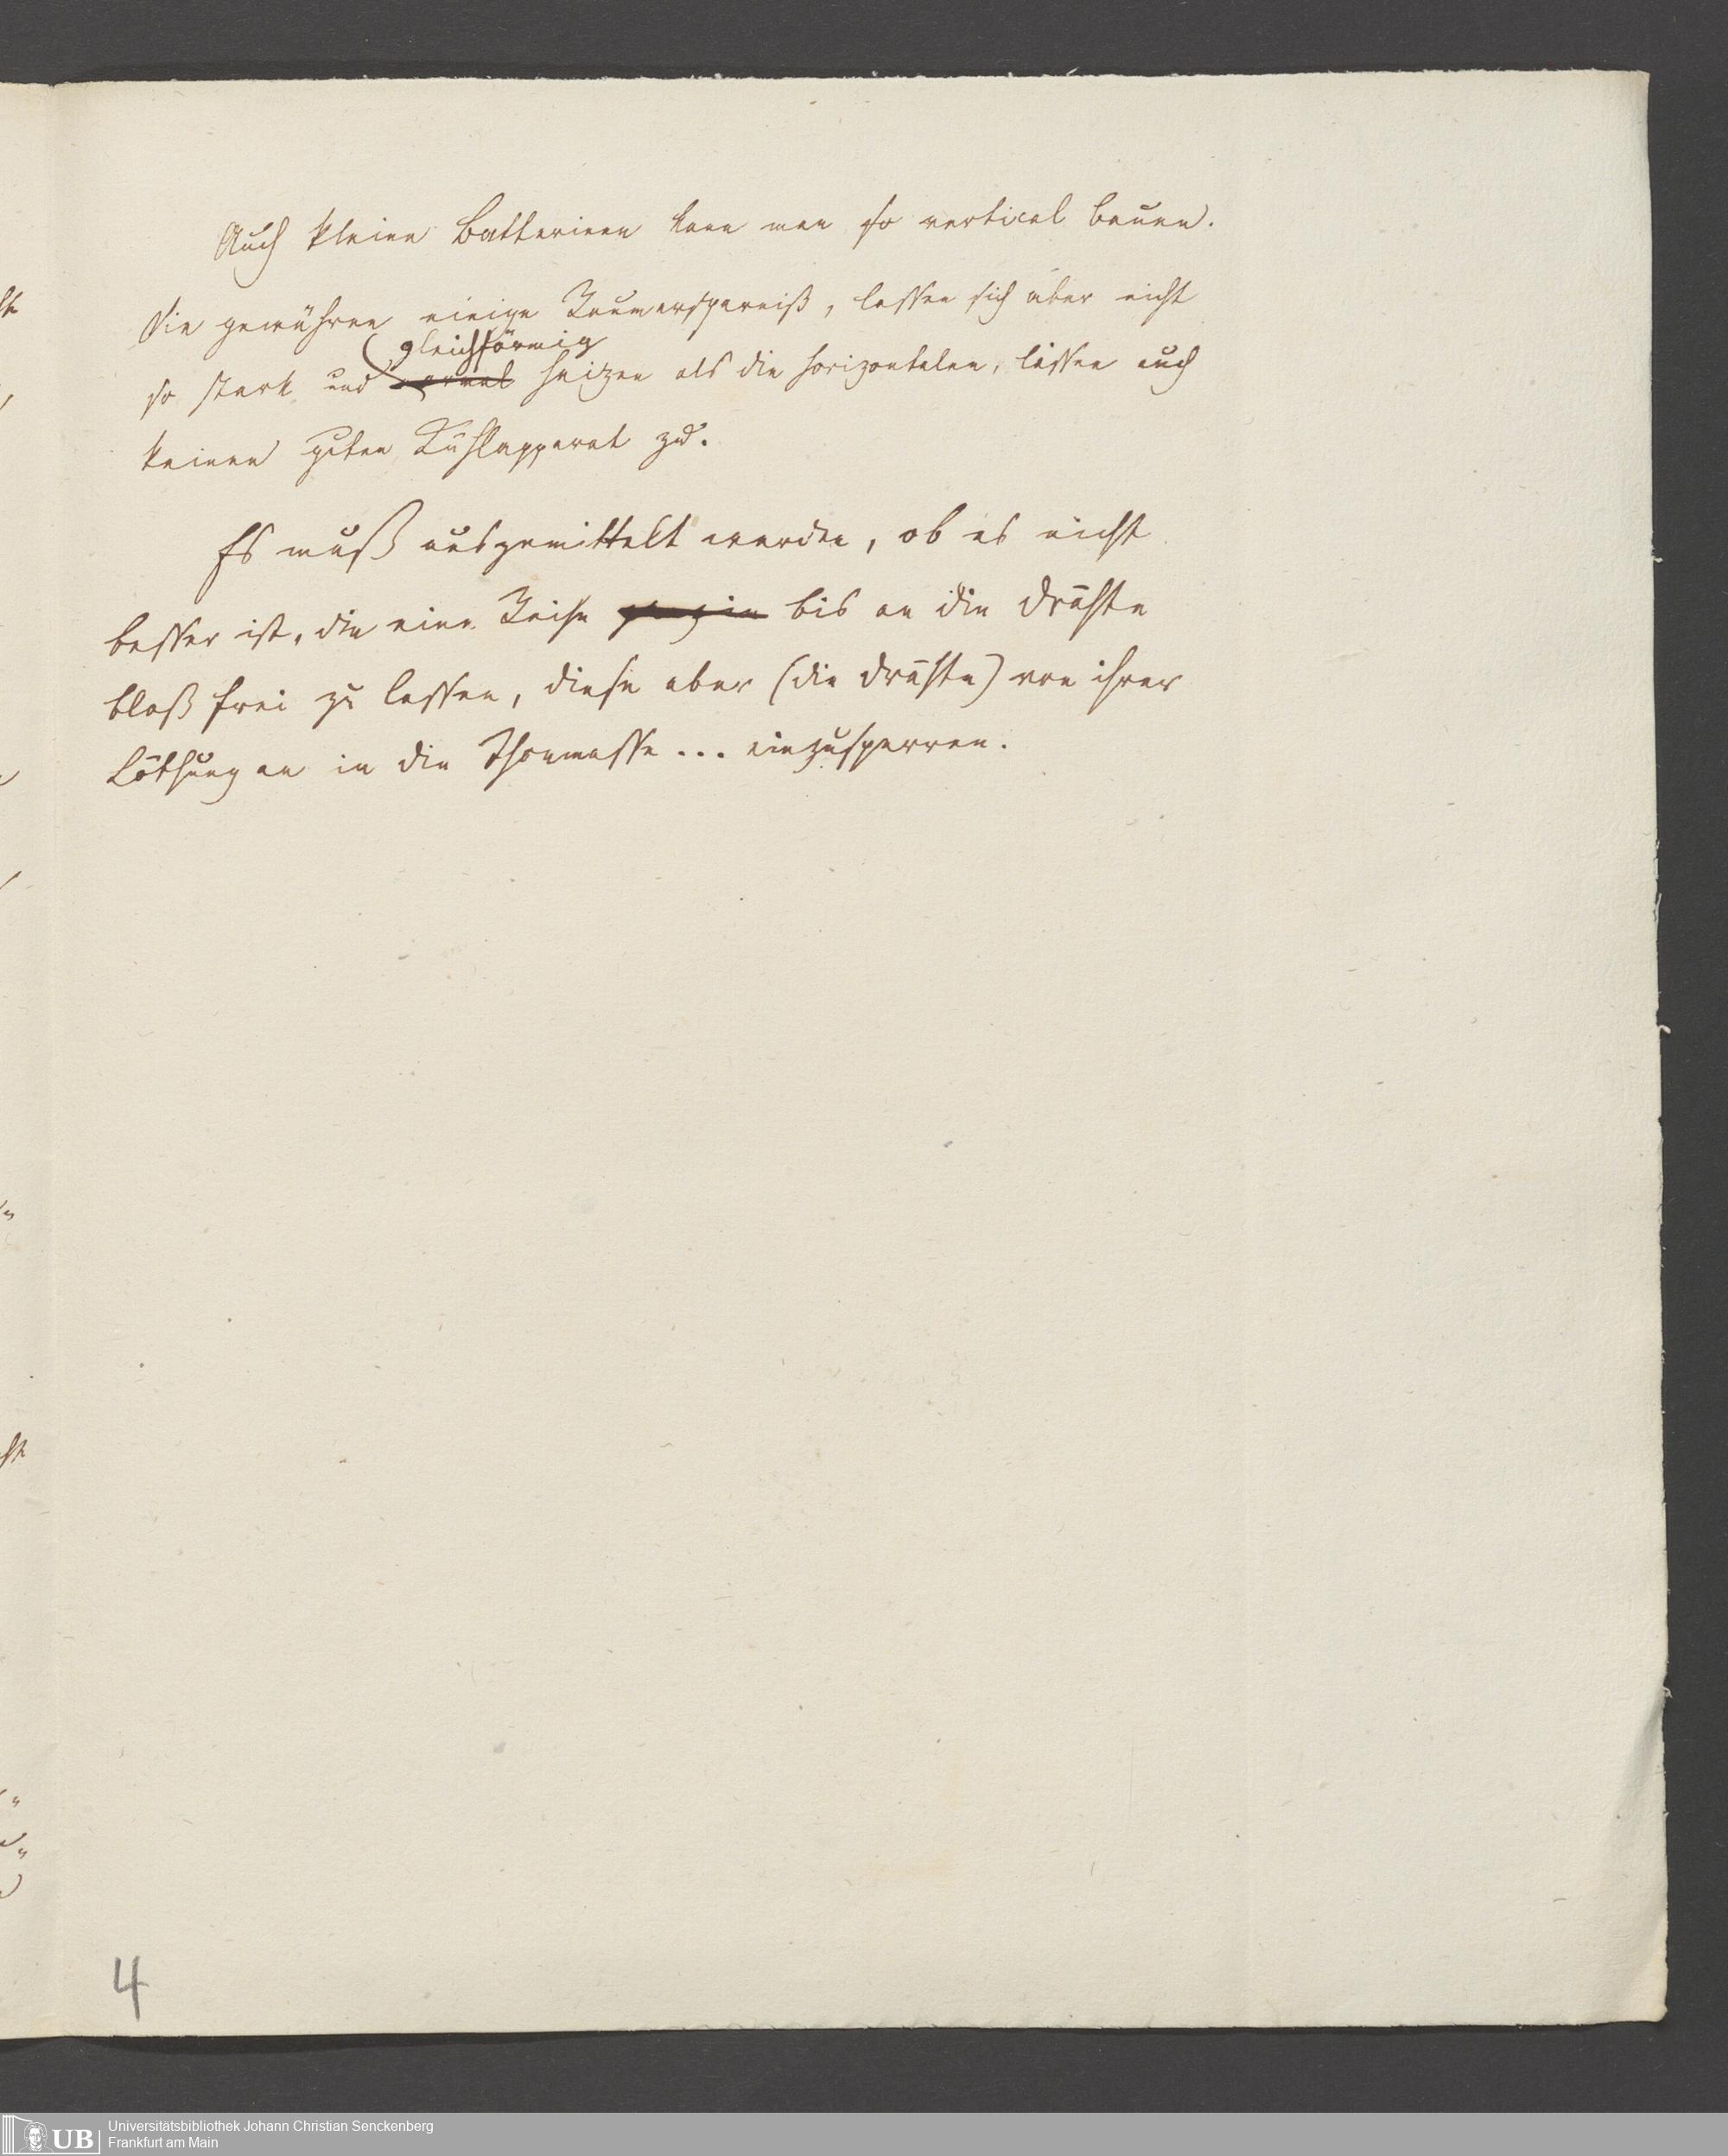 Auch kleine Batterieen kann man so vertical bauen.
Sie gewähren einige Raumersparniß, lassen sich aber nicht
gleichförmig
so stark und heizen als die horizontalen, lassen auch
keinen guten Kühlapparat zu.
Es muß ausgemittelt werden, ob es nicht
besser ist, die eine Reihe bis an die Drähte
bloß frei zu lassen, diese aber (die Drähte) von ihrer
Löthung an in die Thonmasse ... einzusperren.
4
UB
Universitätsbibliothek Johann Christian Senckenberg
Frankfurt am Main